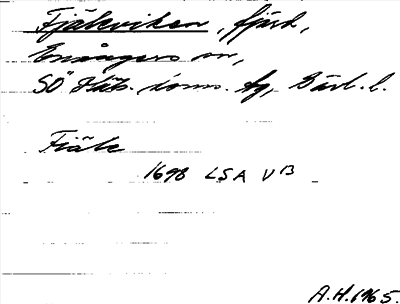 Fjäleviken, fjärd,
Enångers sn,
SÖ Häls. doms. tg, Gävl. l.
Fiäle
1698 LSA V 13
A.H. 1965.